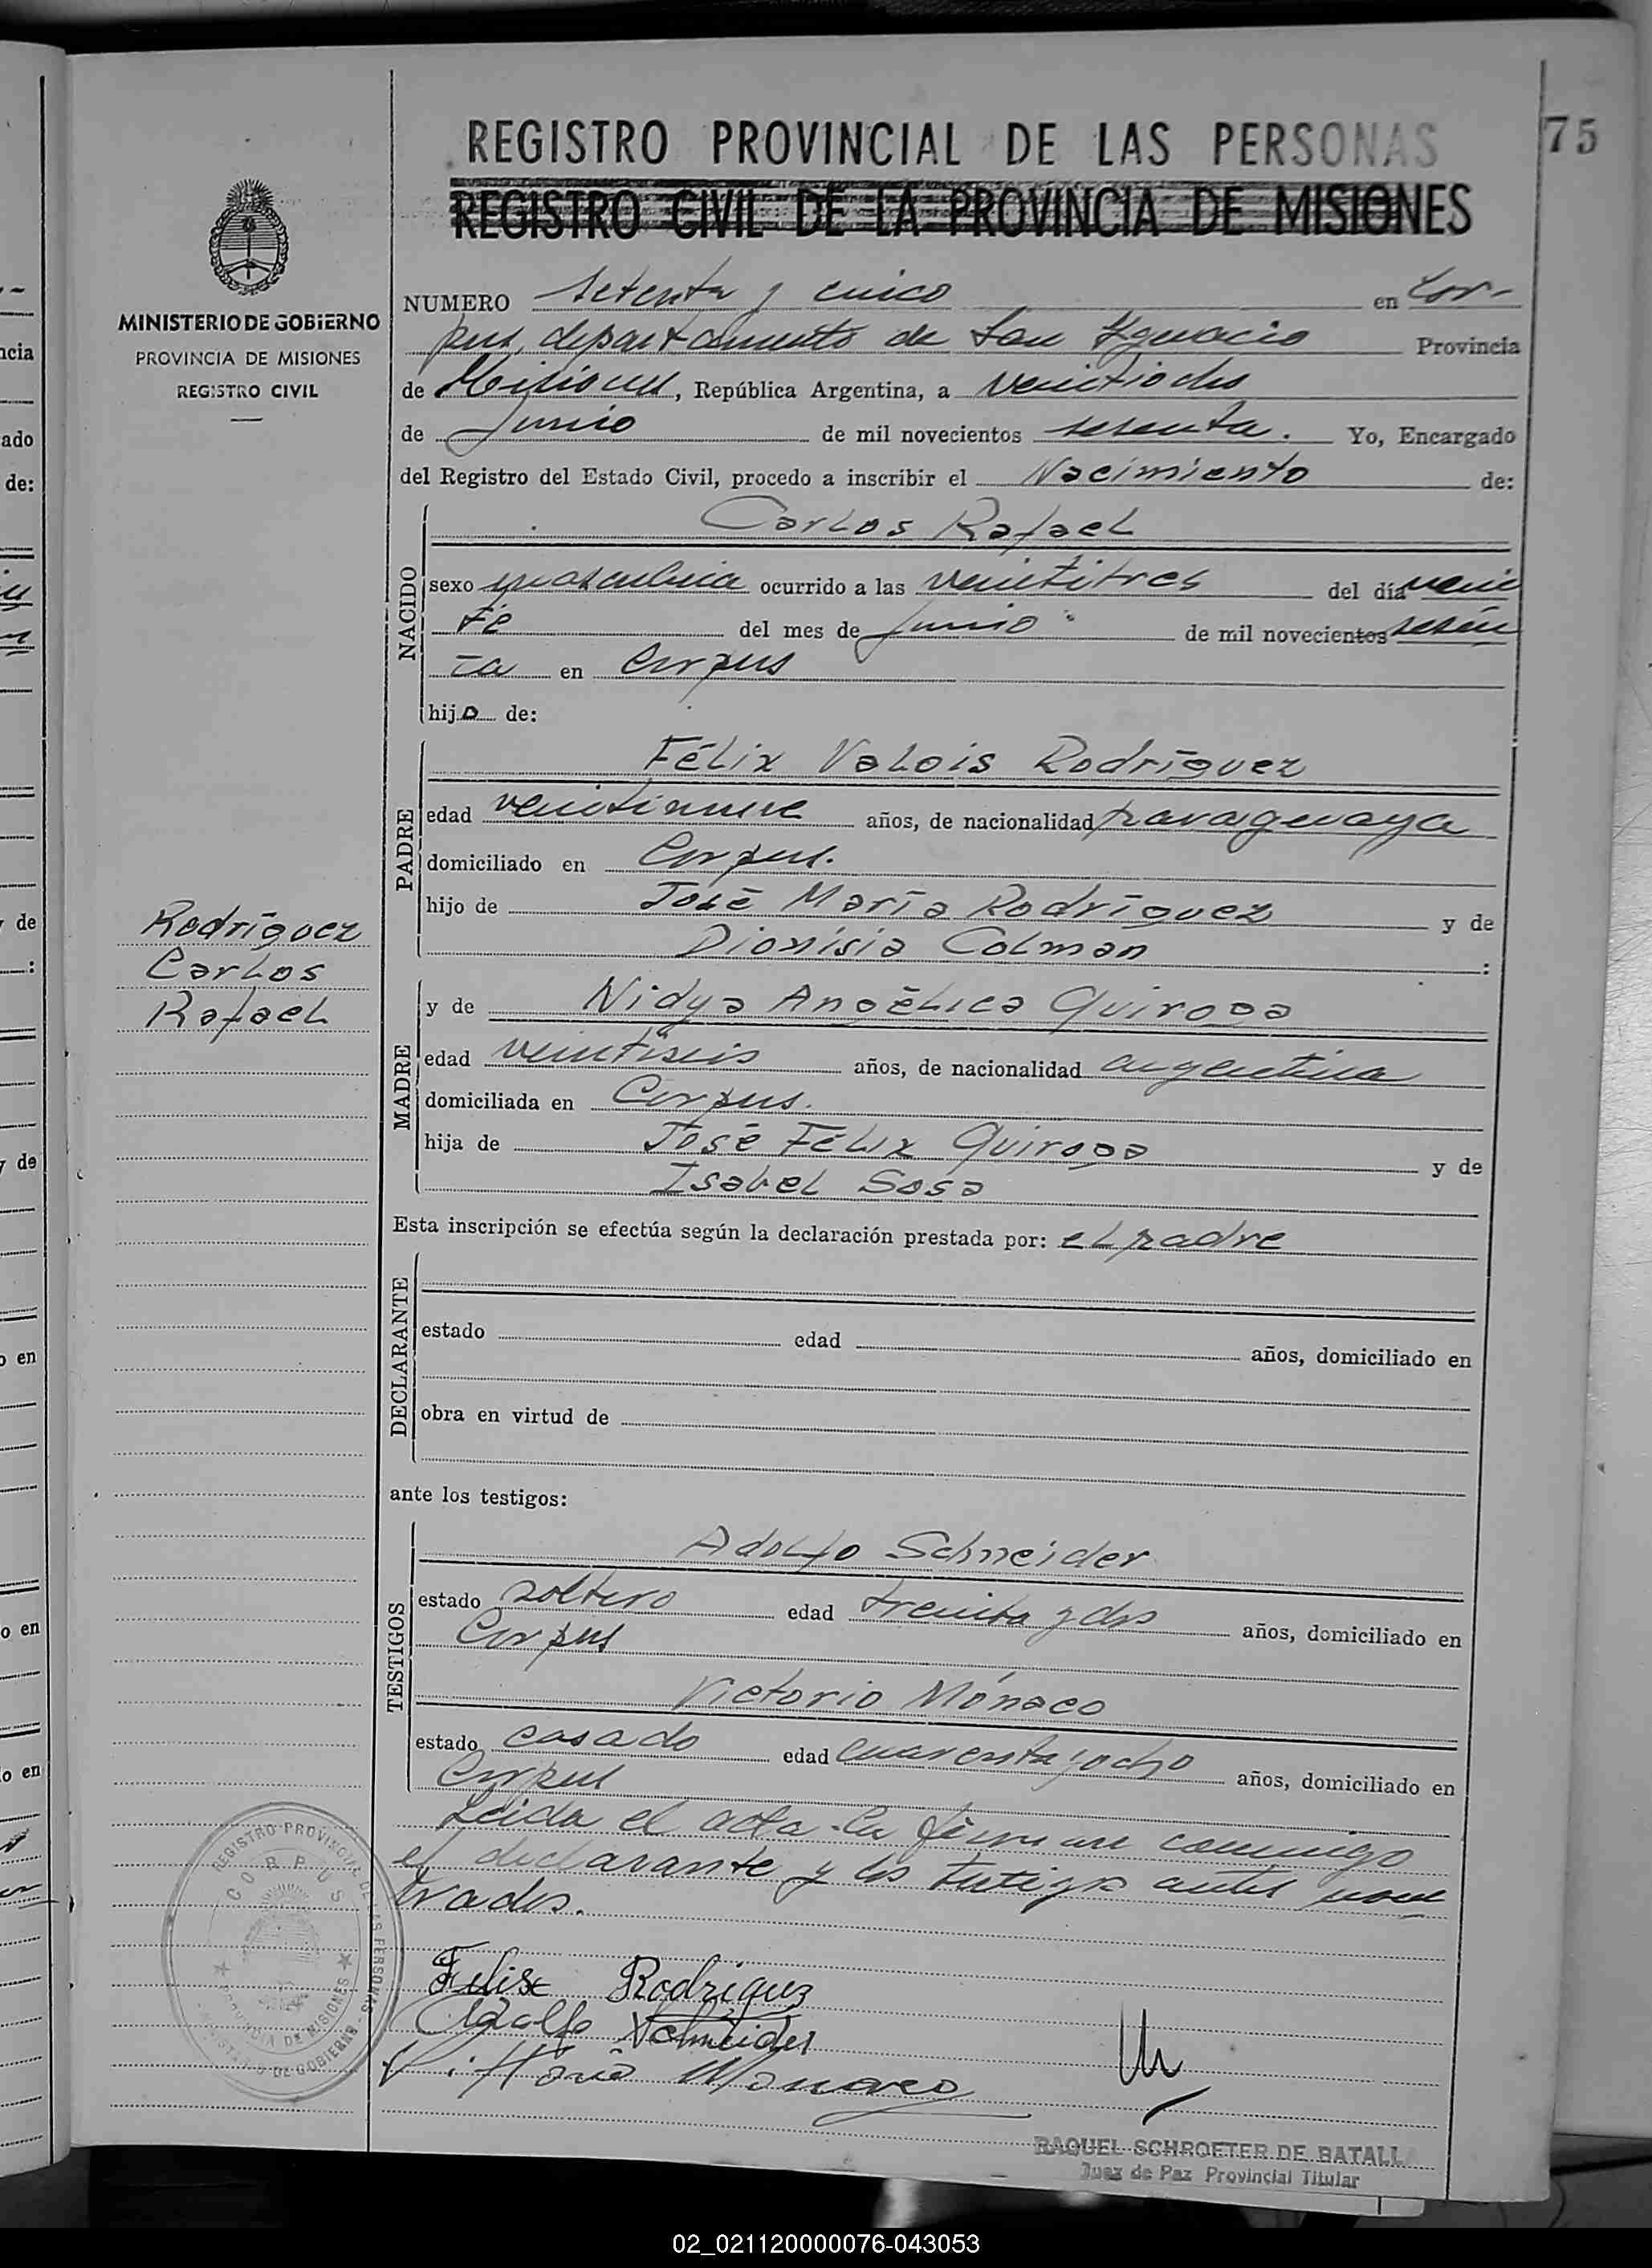 75
REGISTRO PROVINCIAL DE LAS PERSONAS
REGISTRO CIVIL DE LA PROVINCIA DE MISIONES
MINISTERIO DE GOBIERNO
PROVINCIA DE MISIONES
REGISTRO CIVIL
NUMERO setenta y cinco en Cor-
pus, departamento de San Ignacio Provincia
de Misiones, República Argentina, a veintidos
de Junio de mil novecientos sesenta. Yo, Encargado
del Registro del Estado Civil, procedo a inscribir el Nacimiento de:
NACIDO
Carlos Rafael
sexo masculino ocurrido a las veintitres del día vein
te del mes de junio de mil novecientos sesen
ta en Corpus
hijo de:
PADRE
Félix Valois Rodríguez
edad veintinueve años, de nacionalidad paraguaya
domiciliado en Corpus.
hijo de José María Rodríguez y de
Dionisia Colman :
Rodríguez
Carlos
Rafael
MADRE
y de Nidya Angélica Quiroga
edad veintiseis años, de nacionalidad argentina
domiciliada en Corpus.
hija de José Félix Quiroga y de
Isabel Sosa
Esta inscripción se efectúa según la declaración prestada por: el padre
DECLARANTE
estado edad años, domiciliado en
obra en virtud de
ante los testigos:
TESTIGOS
Adolfo Schneider
estado soltero edad treinta y dos años, domiciliado en
Corpus
Victorio Mónaco
estado casado edad cuarenta y ocho años, domiciliado en
Corpus
Leida el acta la firman conmigo
el declarante y los testigos antes nom
brados.
Felix Rodriguez
Adolfo Schneider
Vittorio Monaco
REGISTRO PROVINCIAL DE LAS PERSONAS
CORPUS
PROVINCIA DE MISIONES
MINISTERIO DE GOBIERNO
RAQUEL SCHROETER DE BATALL
Juez de Paz Provincial Titular
02_021120000076-043053